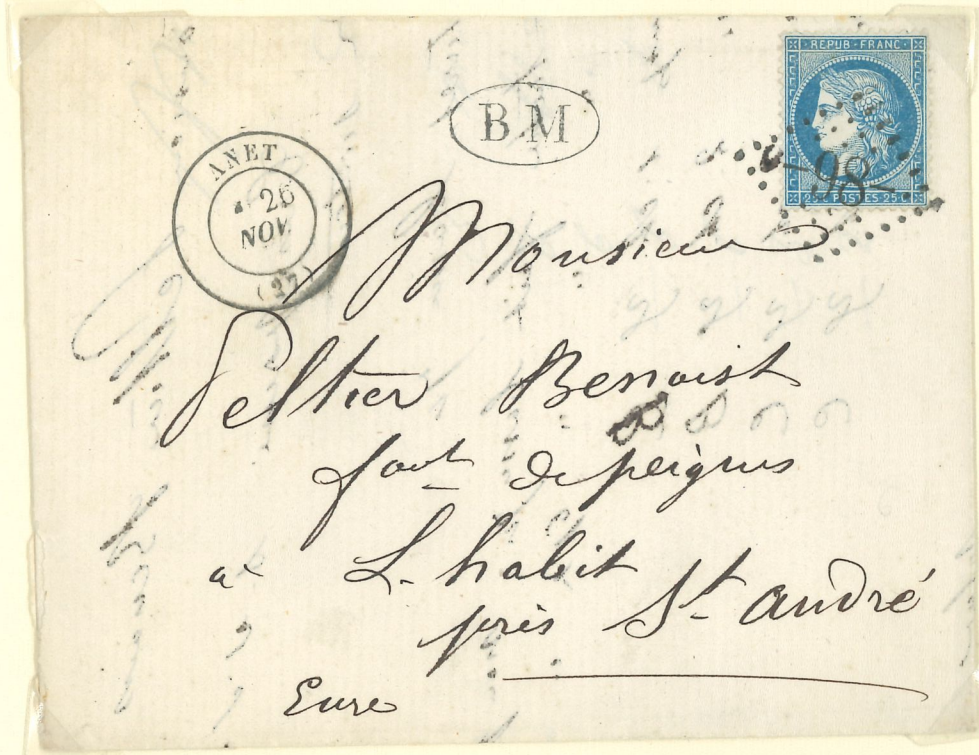 REPUB · FRANC ·
25 c POSTES 25 c
98
B M
ANET
26
NOV.
(27)
Monsieur
Peltier Benoist
fact de peignes
8
à L. habit
près St. André
Eure